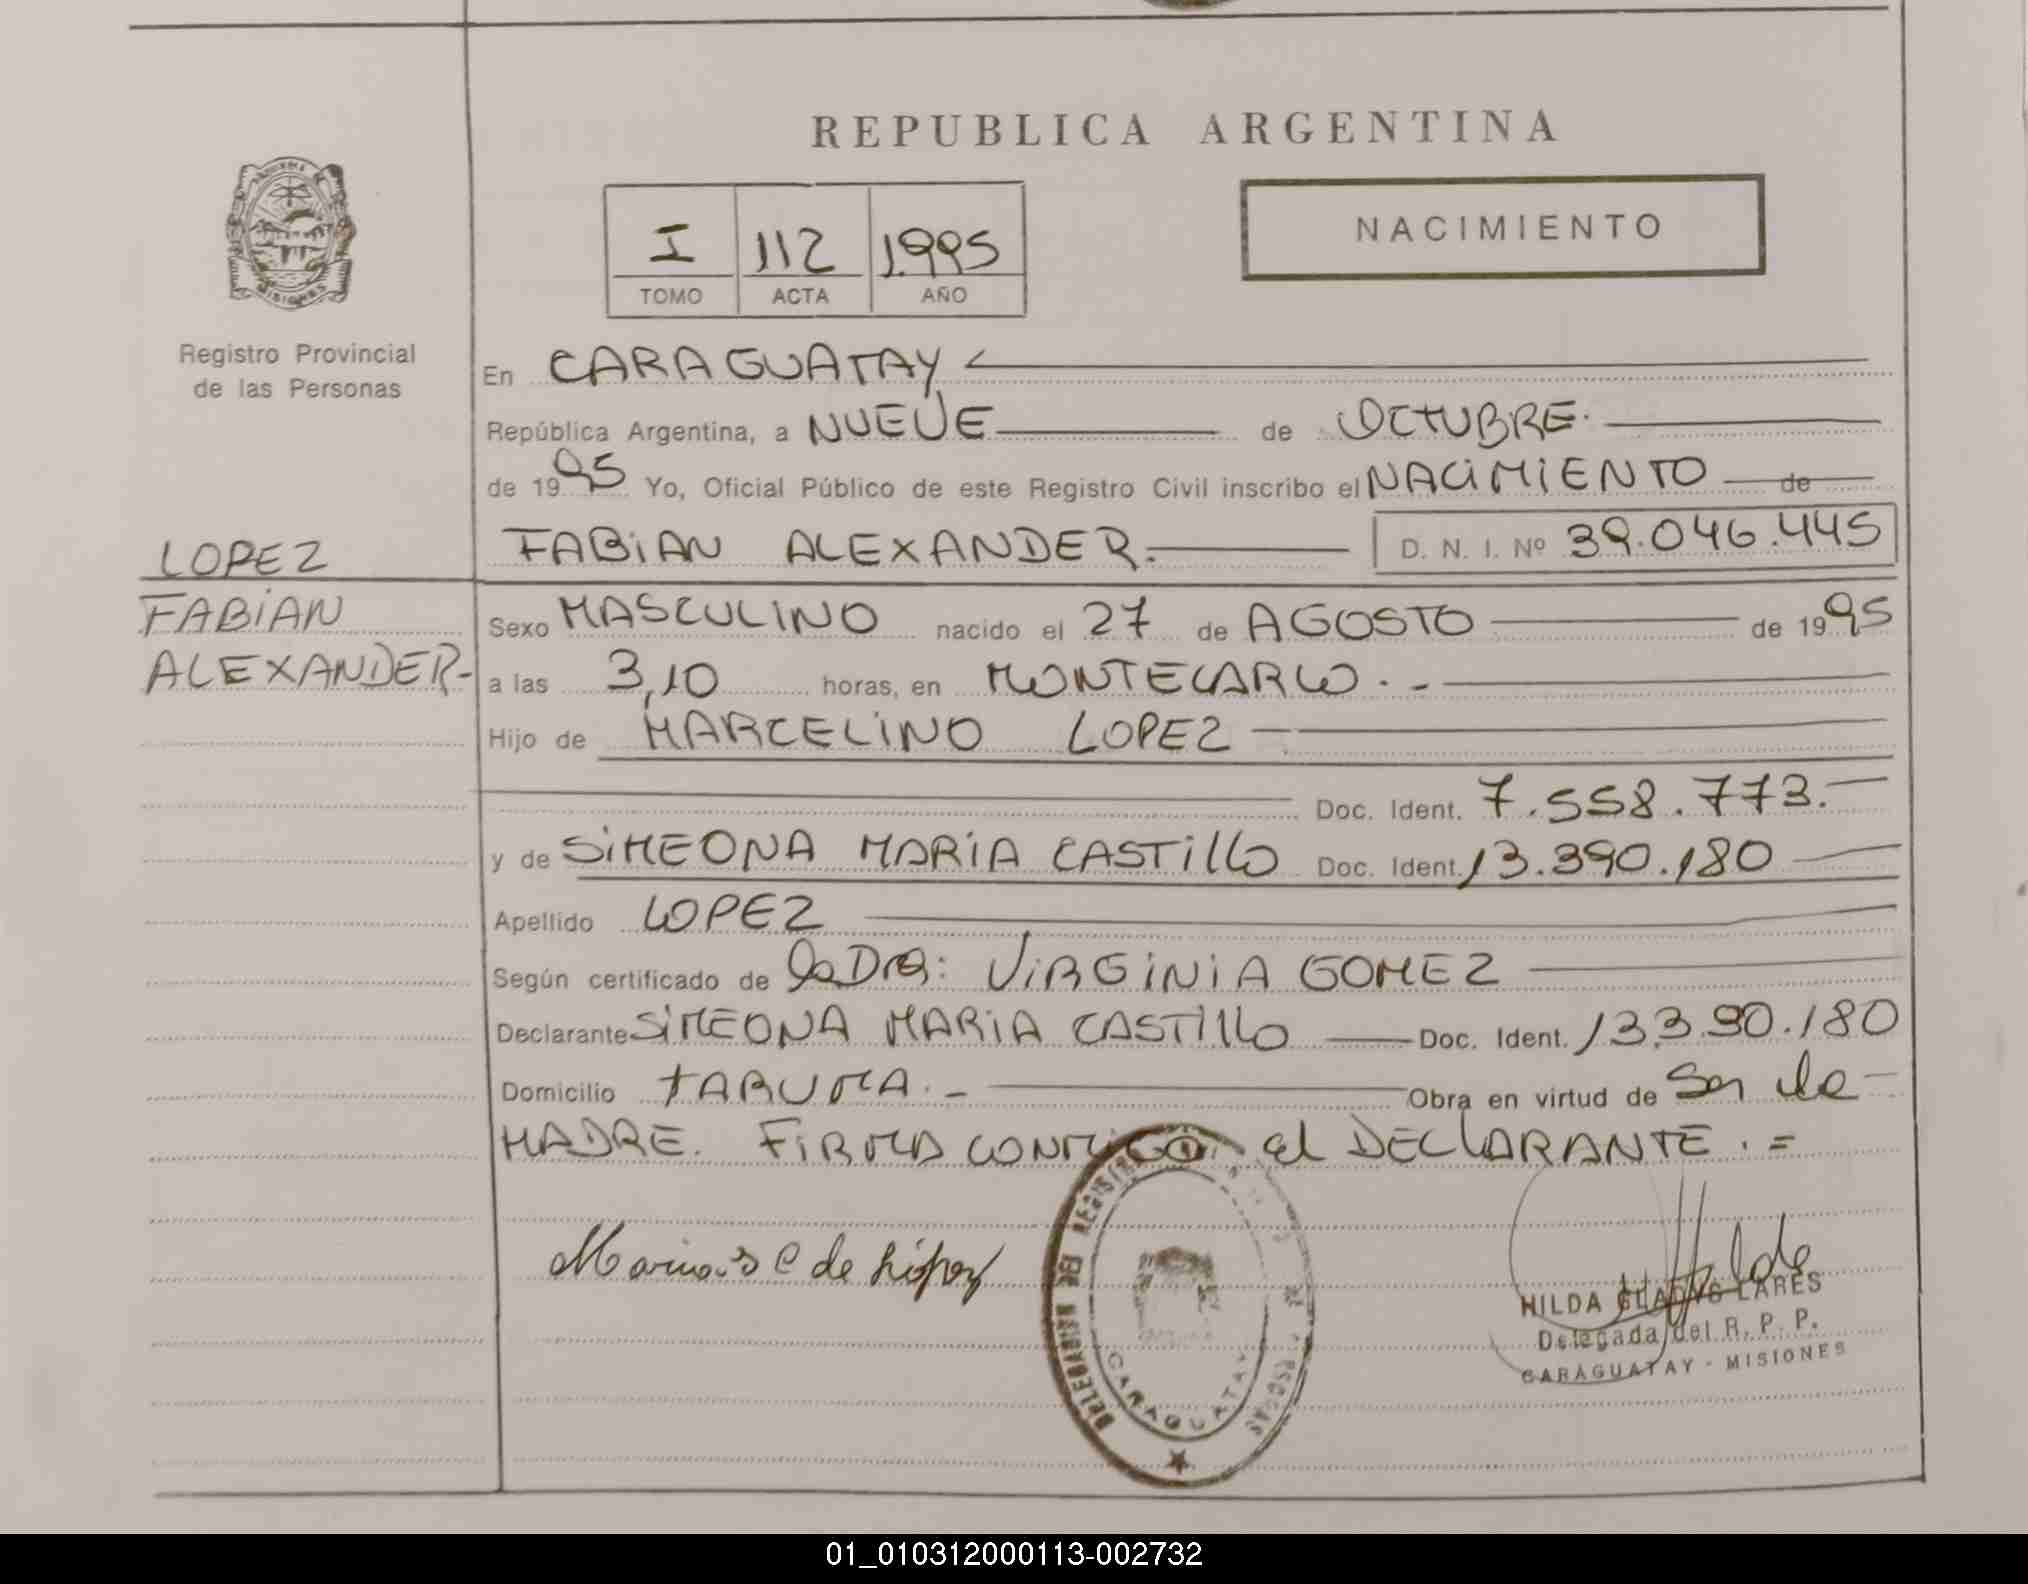 REPUBLICA ARGENTINA
MISIONES
I 112 1.995
TOMO ACTA AÑO
NACIMIENTO
Registro Provincial
de las Personas
En CARAGUATAY
República Argentina, a NUEVE de OCTUBRE.
de 1995 Yo, Oficial Público de este Registro Civil inscribo el NACIMIENTO de
LOPEZ
FABIAN
ALEXANDER-
FABIAN ALEXANDER. D. N. I. Nº 39.046.445
Sexo MASCULINO nacido el 27 de AGOSTO de 1995
a las 3,10 horas, en MONTECARLO.-
Hijo de MARCELINO LOPEZ
Doc. Ident. 7.558.773.
y de SIMEONA MARIA CASTILLO Doc. Ident. 13.390.180
Apellido LOPEZ
Según certificado de la Dra: VIRGINIA GOMEZ
Declarante SIMEONA MARIA CASTILLO Doc. Ident. 13.390.180
Domicilio TARUMA.- Obra en virtud de Ser la
MADRE. FIRMA CONMIGO el DECLARANTE.=
Maria S C de López
DELEGACION DEL REGISTRO
CARAGUATAY
HILDA GLADYS LARES
Delegada del R. P. P.
CARAGUATAY - MISIONES
01_010312000113-002732